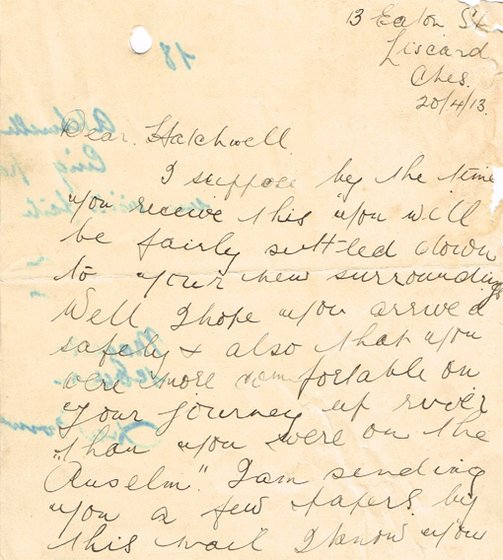 18
13 Eaton St
Liscard
Ches.
20/4/13.
Dear. Hatchwell.
I suppose by the time
you receive this you will
be fairly settled down
to your new surroundings
Well I hope you arrived
safely & also that you
were more comfortable on
your journey up river
than you were on the
"Anselm". I am sending
you a few papers by
this mail I know you